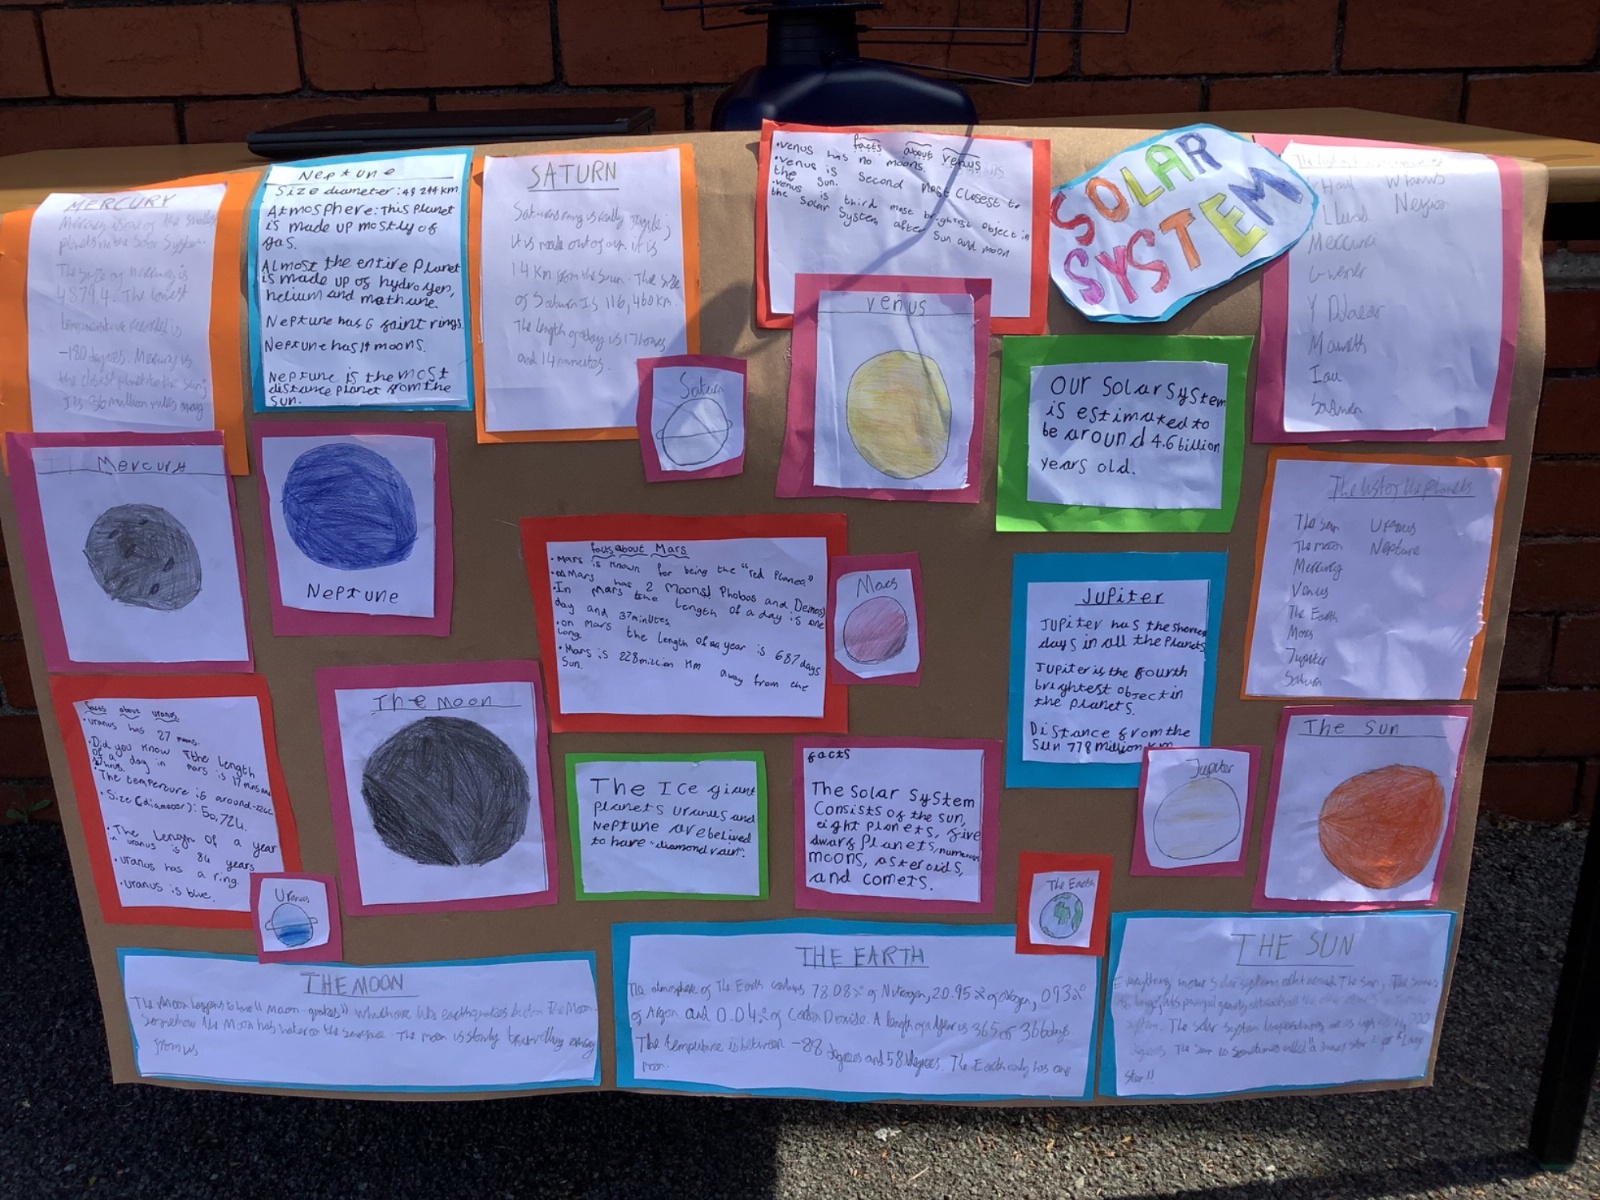 MERCURY
planets in the Solar System.
The size of Mercury is
4879.4. The lowest
temperature recorded is
-180 degrees. Mercury is
the closest planet to the Sun;
Its 36 million miles away
Neptune
Size diameter: 49 244 km
Atmosphere: This Planet
is made up mostly of
gas.
Almost the entire Planet
is made up of hydrogen,
helium and mathune.
Neptune has 6 faint rings.
Neptune has 14 moons.
Neptune is the most
distance planet from the
Sun.
SATURN
it is made out of It is
1.4 Km from the Sun. The size
of Saturn Is 116,460 km.
The length of day is 17 hours
and 14 minutes.
Saturn
facts about venus
•venus has no moons.
•venus is second most closest to
the Sun.
•venus is third most brightest object in
the Solar System after Sun and moon
venus
SOLAR
SYSTEM
Our Solar System
is estimated to
be around 4.6 billion
years old.
Yr Haul Wranws
Lleuad
Mercuri
Gwener
Y Ddaear
Mawrth
Iau
Sadwrn
The list of the planets
The sun Uranus
The moon Neptune
Mercury
Venus
The Earth
Mars
Jupiter
Saturn
Mercury
Neptune
facts about Mars
•Mars is known for being the "red Planet"
•Mars has 2 Moons! Phobos and Demos)
•In Mars the length of a day is one
day and 37 minutes.
•on Mars the length of a year is 687 days
long.
•Mars is 228 million Km away from the
Sun.
Mars
Jupiter
Jupiter has the shortest
days in all the Planets
Jupiter is the fourth
brightest object in
the Planets.
Distance from the
Sun 778 million km
Jupiter
The Sun
facts about uranus
•uranus has 27 moons.
•Did you know the length
of a day in mars is 17 mins and
•The temperture is around
•Size (diameter): 50,724.
•The Length of a year
in uranus is 84 years
•uranus has a ring.
•uranus is blue.
Uranus
The moon
The Ice giant
planets Uranus and
Neptune are belived
to have "diamond rain".
facts
The Solar System
Consists of the sun,
eight planets, five
dwarf Planets, numerous
moons, asteroids,
and comets.
The Earth
THE MOON
The Moon happens to have "moon-quakes" which are like earthquakes but on The Moon.
somehow the Moon has water on the surface. The moon is slowly travelling away
from us
THE EARTH
The atmosphere of The Earth contains 78.08% of Nitrogen, 20.95% of oxygen, 0.93%
of Argon and 0.04% of Carbon Dioxide. A length of a year is 365 or 366 days
The tempurture is between -88 degrees and 58 degrees. The Earth only has one
moon.
THE SUN
Star"